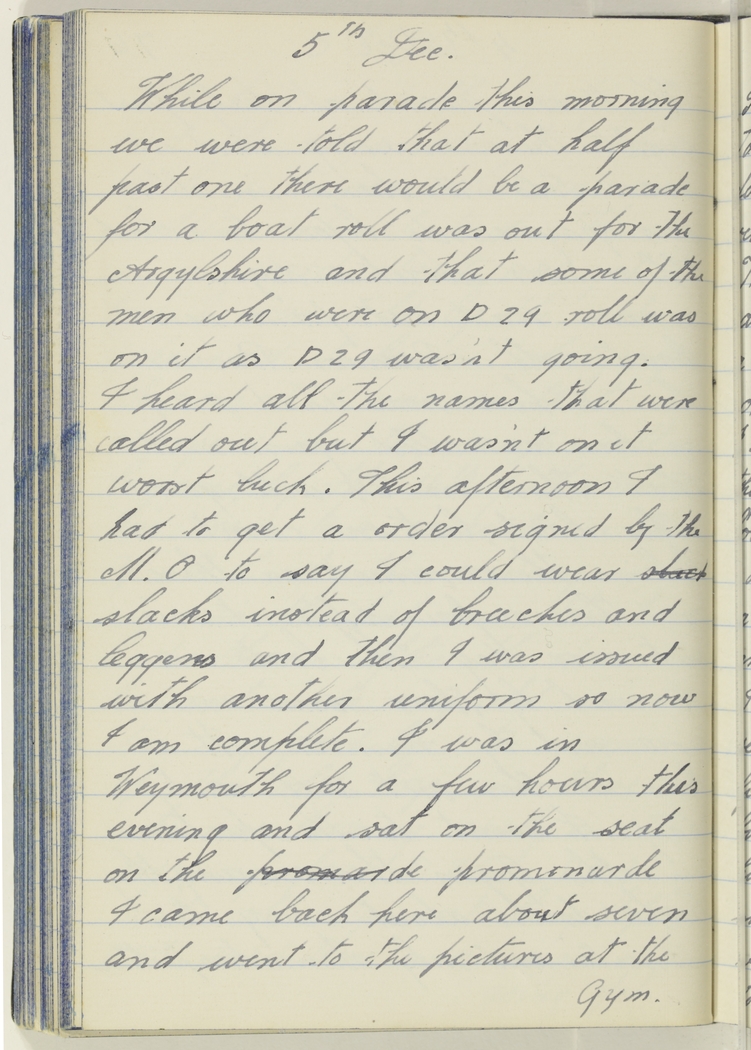 5th Dec.
While on parade this morning
we were told that at half
past one there would be a parade
for a boat roll was out for the
Argylshire and that some of the
men who were on D29 roll was
on it as D29 wasn't going.
I heard all the names that were
called out but I wasn't on it
worst luck. This afternoon I
had to get a order signed by the
M.O to say I could wear slack
slacks instead of breeches and
leggens and then I was issued
with another uniform so now
I am complete. I was in
Weymouth for a few hours this
evening and sat on the seat
on the promarde promenarde
I came back here about seven
and went to the pictures at the
Gym.